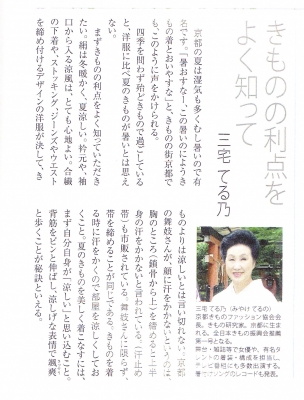 きものの利点を
よく知って
三宅 てる乃
京都の夏は湿気も多くむし暑いので有
名です。「暑おすなー、この暑いのにようき
もの着とおいやすなこと、きものの街京都で
も、このように声をかけられる。
四季を問わず殆どきもので過ごしている
と、洋服に比べ夏のきものが暑いとは思え
ない。
まずきものの利点をよく知っていただき
たい。絹は冬暖かく、夏涼しい。衿元や、袖
口から入る涼風は、とても心地よい。合繊
の下着や、ストッキング、ジーンズやウエスト
を締め付けるデザインの洋服が決して、き
ものよりは涼しいとは言い切れない。京都
の舞妓さんが、顔に汗をかかないというのは、
胸のところ(鎖骨から上)を締めると上半
身の汗をかかないと言われている。(汗止め
帯)も市販されている。舞妓さんに限らず、
帯を締めることが同じである。きものを着
る時に汗をかくので部屋を涼しくしてお
くこと。夏のきものを美しく着こなすには、
まず自分自身が「涼しい」と思い込むこと。
背筋をピンと伸ばし、涼しげな表情で颯爽
と歩くことが秘訣といえる。
三宅 てる乃(みやけ てるの)
京都きものファッション協会会
長。きもの研究家。京都に生ま
れる。全日本きもの振興会推薦
第一号となる。
舞台・雑誌等で女優や、有名タ
レントの着装・構成を担当し、
テレビ番組にも多数出演する。